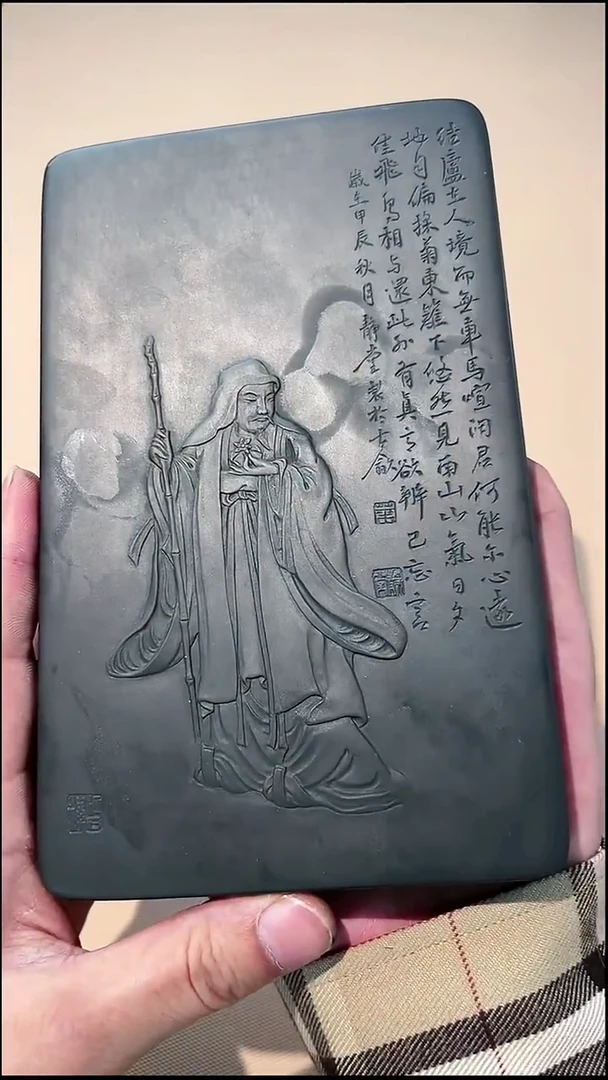 结廬在人境而無車馬喧問君何能尔心遠
地自偏採菊東籬下悠然見南山山氣日夕
佳飛鳥相与還此外有真意欲辨已忘言
歲在甲辰秋月靜堂製於古歙